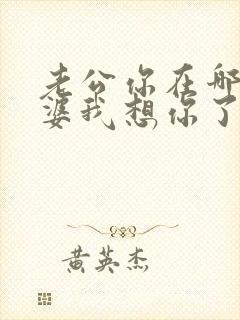 老公你在哪
婆我想你了
黄英杰